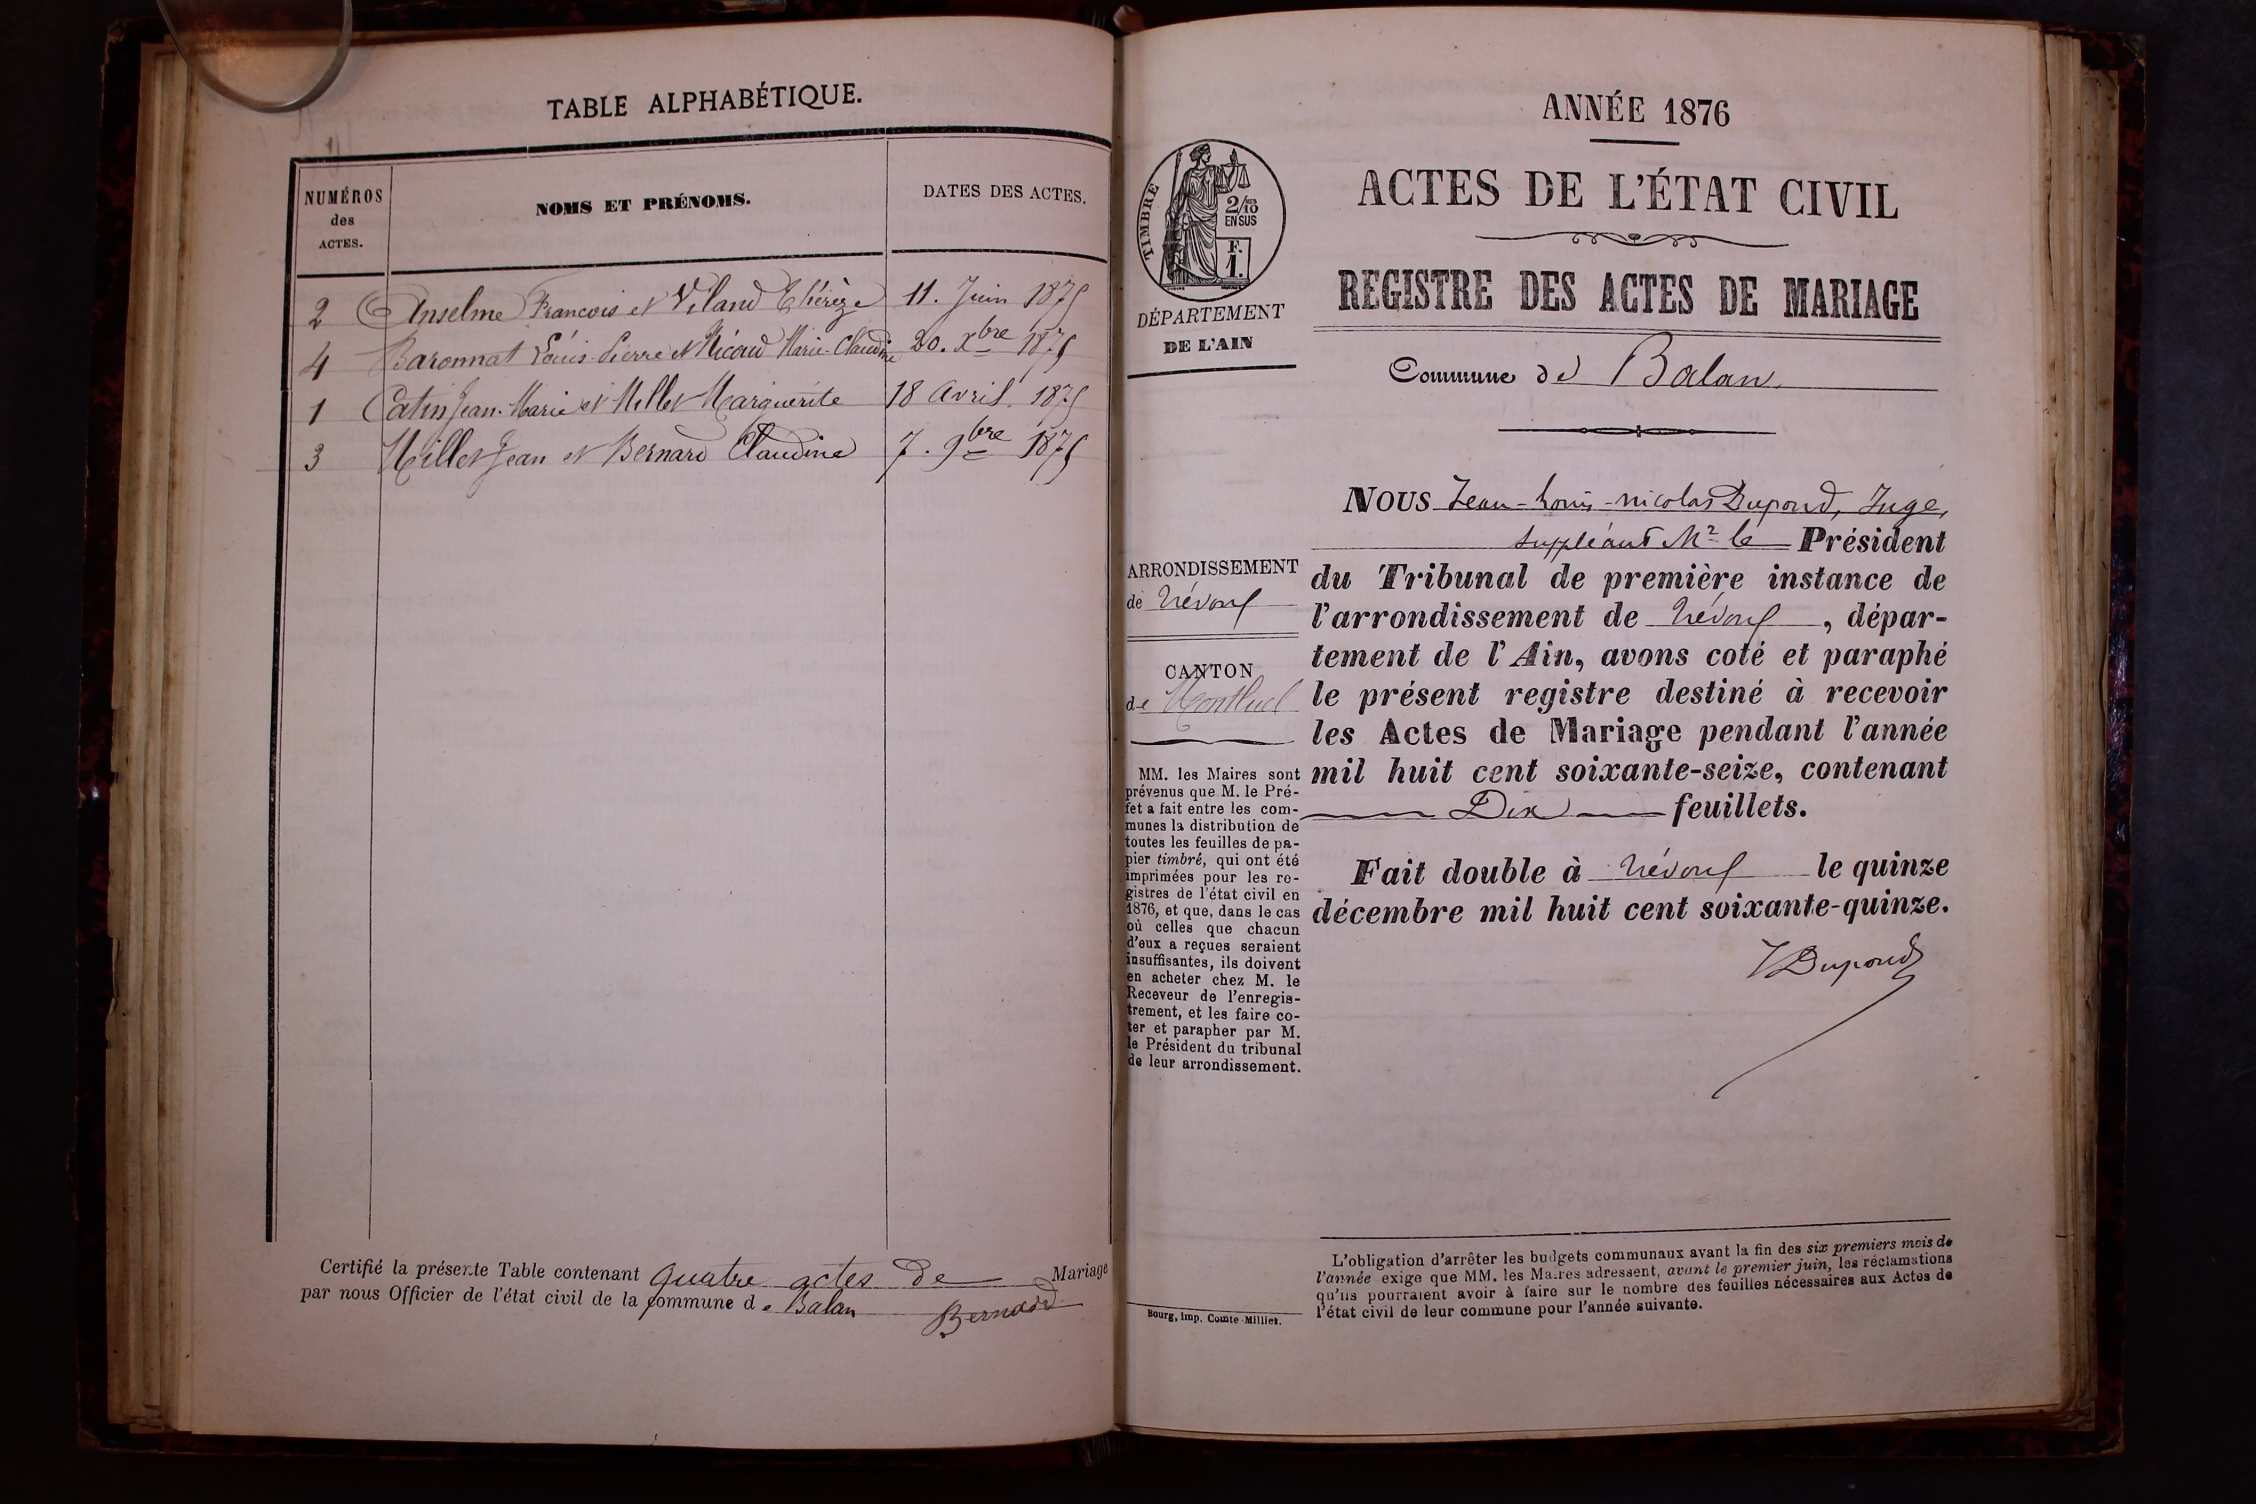 TABLE ALPHABÉTIQUE.
NUMÉROS
des
ACTES.
NOMS ET PRÉNOMS.
DATES DES ACTES.
2 Anselme Francois et Viland Thérèze 11. Juin 1875
4 Baronnat Louis Pierre et Nicoud Marie-Claudine 20. Xbre 1875
1 Catin Jean-Marie et Millet Marguerite 18 Avril 1875
3 Millet Jean et Bernard Claudine 7. 9bre 1875
Certifié la présente Table contenant quatre actes de Mariage
par nous Officier de l'état civil de la commune de Balan
Bernard
ANNÉE 1876
ACTES DE L'ÉTAT CIVIL
REGISTRE DES ACTES DE MARIAGE
Commune de Balan
TIMBRE
2/10
EN SUS
F.
1.
DÉPARTEMENT
DE L'AIN
ARRONDISSEMENT
de Trévoux
CANTON
de Montluel
MM. les Maires sont
prévenus que M. le Pré-
fet a fait entre les com-
munes la distribution de
toutes les feuilles de pa-
pier timbré, qui ont été
imprimées pour les re-
gistres de l'état civil en
1876, et que, dans le cas
où celles que chacun
d'eux a reçues seraient
insuffisantes, ils doivent
en acheter chez M. le
Receveur de l'enregis-
trement, et les faire co-
ter et parapher par M.
le Président du tribunal
de leur arrondissement.
Bourg, imp. Comte-Milliet.
NOUS Jean-Louis-nicolas Dupond, Juge,
suppléant Mr le Président
du Tribunal de première instance de
l'arrondissement de Trévoux, dépar-
tement de l'Ain, avons coté et paraphé
le présent registre destiné à recevoir
les Actes de Mariage pendant l'année
mil huit cent soixante-seize, contenant
Dix feuillets.
Fait double à Trévoux le quinze
décembre mil huit cent soixante-quinze.
Dupond
L'obligation d'arrêter les budgets communaux avant la fin des six premiers mois de
l'année exige que MM. les Maires adressent, avant le premier juin, les réclamations
qu'ils pourraient avoir à faire sur le nombre des feuilles nécessaires aux Actes de
l'état civil de leur commune pour l'année suivante.